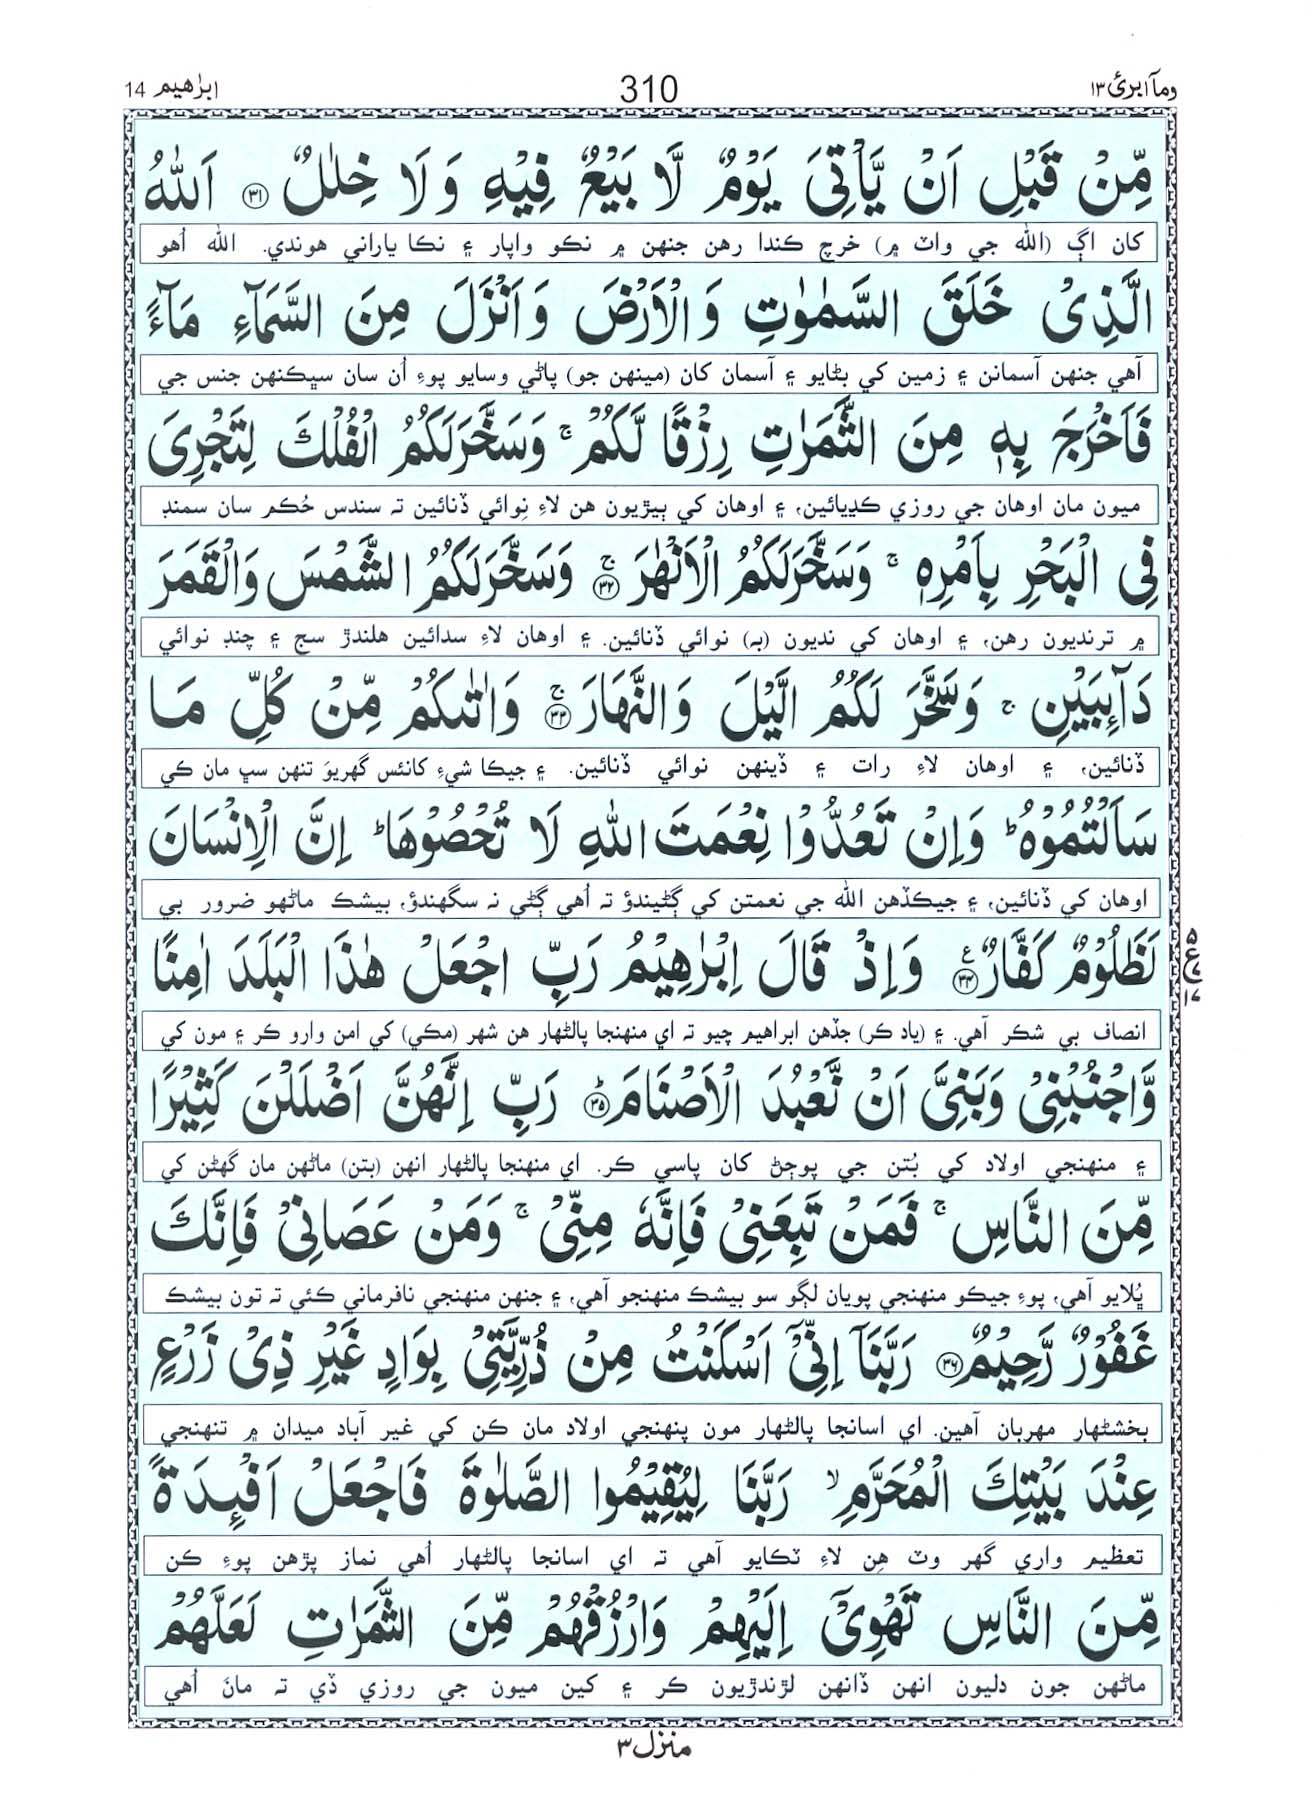 ومآابرئ ١٣ 310 ابرٰهيم 14
مِّنْ قَبْلِ اَنْ يَّاْتِىَ يَوْمٌ لَّا بَيْعٌ فِيْهِ وَ لَا خِلٰلٌ ﴿۳۱﴾ اَللّٰهُ
کان اڳ (الله جي واٽ ۾) خرچ ڪندا رهن جنهن ۾ نڪو واپار ۽ نڪا ياراني هوندي. الله اُهو
الَّذِىْ خَلَقَ السَّمٰوٰتِ وَ الْاَرْضَ وَ اَنْزَلَ مِنَ السَّمَآءِ مَآءً
آهي جنهن آسمانن ۽ زمين کي بڻايو ۽ آسمان کان (مينهن جو) پاڻي وسايو پوءِ اُن سان سڀڪنهن جنس جي
فَاَخْرَجَ بِهٖ مِنَ الثَّمَرٰتِ رِزْقًا لَّكُمْ ۚ وَسَخَّرَلَكُمُ الْفُلْكَ لِتَجْرِىَ
ميون مان اوهان جي روزي ڪڍيائين، ۽ اوهان کي ٻيڙيون هن لاءِ نِوائي ڏنائين ته سندس حُڪم سان سمنڊ
فِى الْبَحْرِ بِاَمْرِهٖ ۚ وَسَخَّرَلَكُمُ الْاَنْهٰرَ ﴿۳۲﴾ۚ وَسَخَّرَلَكُمُ الشَّمْسَ وَالْقَمَرَ
۾ ترنديون رهن، ۽ اوهان کي نديون (به) نوائي ڏنائين. ۽ اوهان لاءِ سدائين هلندڙ سج ۽ چنڊ نوائي
دَآئِبَيْنِ ۚ وَسَخَّرَ لَكُمُ الَّيْلَ وَالنَّهَارَ ﴿۳۳﴾ۚ وَاٰتٰىكُمْ مِّنْ كُلِّ مَا
ڏنائين، ۽ اوهان لاءِ رات ۽ ڏينهن نوائي ڏنائين. ۽ جيڪا شيءِ کانئس گهريوَ تنهن سڀ مان ڪي
سَاَلْتُمُوْهُ ؕ وَاِنْ تَعُدُّوْا نِعْمَتَ اللّٰهِ لَا تُحْصُوْهَا ؕ اِنَّ الْاِنْسَانَ
اوهان کي ڏنائين، ۽ جيڪڏهن الله جي نعمتن کي ڳڻيندؤ ته اُهي ڳڻي نه سگهندؤ، بيشڪ ماڻهو ضرور بي
لَظَلُوْمٌ كَفَّارٌ ﴿۳۴﴾ وَاِذْ قَالَ اِبْرٰهِيْمُ رَبِّ اجْعَلْ هٰذَا الْبَلَدَ اٰمِنًا
انصاف بي شڪر آهي. ۽ (ياد ڪر) جڏهن ابراهيم چيو ته اي منهنجا پالڻهار هن شهر (مڪي) کي امن وارو ڪر ۽ مون کي
وَّاجْنُبْنِىْ وَبَنِىَّ اَنْ نَّعْبُدَ الْاَصْنَامَ ﴿۳۵﴾ؕ رَبِّ اِنَّهُنَّ اَضْلَلْنَ كَثِيْرًا
۽ منهنجي اولاد کي بُتن جي پوڄڻ کان پاسي ڪر. اي منهنجا پالڻهار انهن (بتن) ماڻهن مان گهڻن کي
مِّنَ النَّاسِ ۚ فَمَنْ تَبِعَنِىْ فَاِنَّهٗ مِنِّىْ ۚ وَمَنْ عَصَانِىْ فَاِنَّكَ
ڀُلايو آهي، پوءِ جيڪو منهنجي پويان لڳو سو بيشڪ منهنجو آهي، ۽ جنهن منهنجي نافرماني ڪئي ته تون بيشڪ
غَفُوْرٌ رَّحِيْمٌ ﴿۳۶﴾ رَبَّنَآ اِنِّىْٓ اَسْكَنْتُ مِنْ ذُرِّيَّتِىْ بِوَادٍ غَيْرِ ذِىْ زَرْعٍ
بخشڻهار مهربان آهين. اي اسانجا پالڻهار مون پنهنجي اولاد مان ڪن کي غير آباد ميدان ۾ تنهنجي
عِنْدَ بَيْتِكَ الْمُحَرَّمِ ۙ رَبَّنَا لِيُقِيْمُوا الصَّلٰوةَ فَاجْعَلْ اَفْئِدَةً
تعظيم واري گهر وٽ هِن لاءِ ٽڪايو آهي ته اي اسانجا پالڻهار اُهي نماز پڙهن پوءِ ڪن
مِّنَ النَّاسِ تَهْوِىْٓ اِلَيْهِمْ وَارْزُقْهُمْ مِّنَ الثَّمَرٰتِ لَعَلَّهُمْ
ماڻهن جون دليون انهن ڏانهن لڙندڙيون ڪر ۽ کين ميون جي روزي ڏي ته مانَ اُهي
منزل ٣